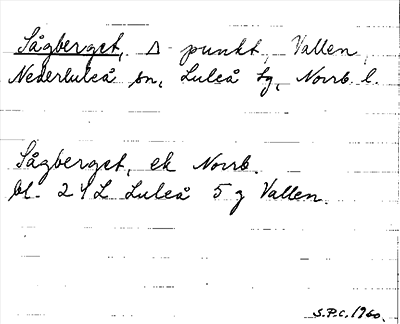 Sågberget, Δ punkt, Vallen,
Nederluleå sn, Luleå tg, Norrb. l.
Sågberget, ek Norrb.
bl. 24 L Luleå 5 g Vallen.
S.P.C. 1960.